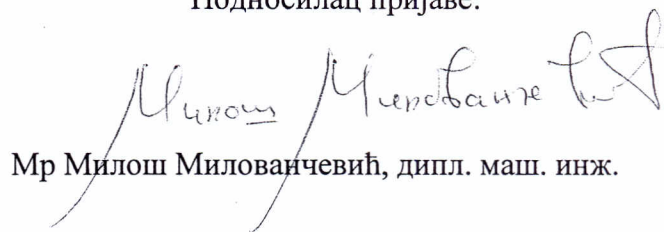 Подносилац пријаве:
Милош Миловaнчевић
Мр Милош Милованчевић, дипл. маш. инж.